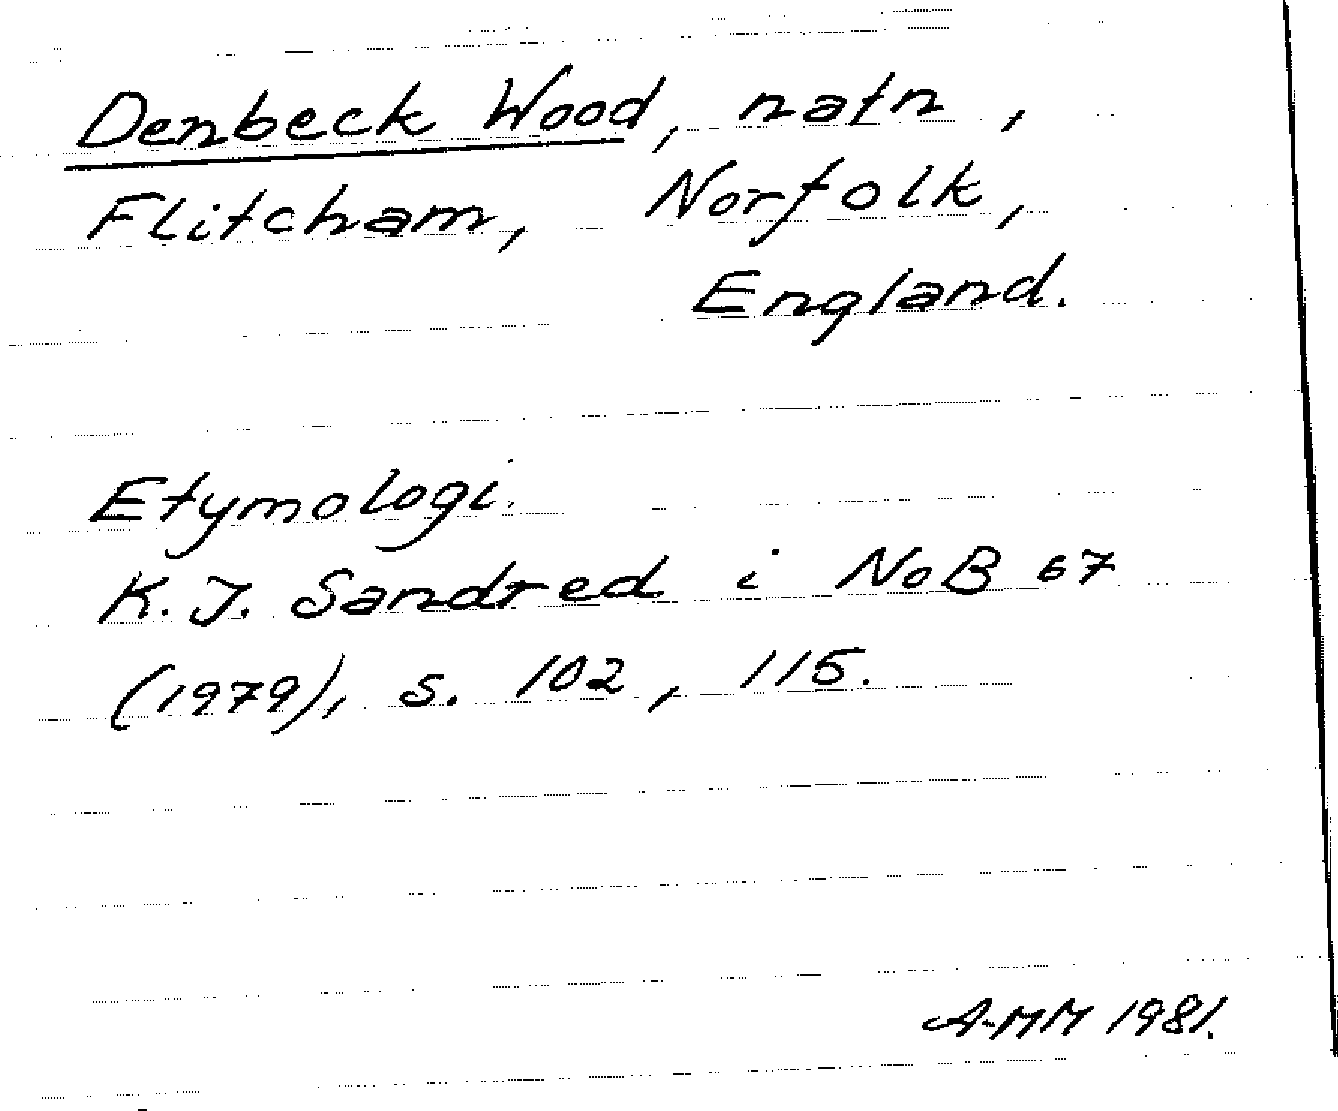 Denbeck Wood, natn,
Flitcham, Norfolk,
England.
Etymologi.
K. J. Sandred i NoB 67
(1979), s. 102, 115.
A-MM 1981.